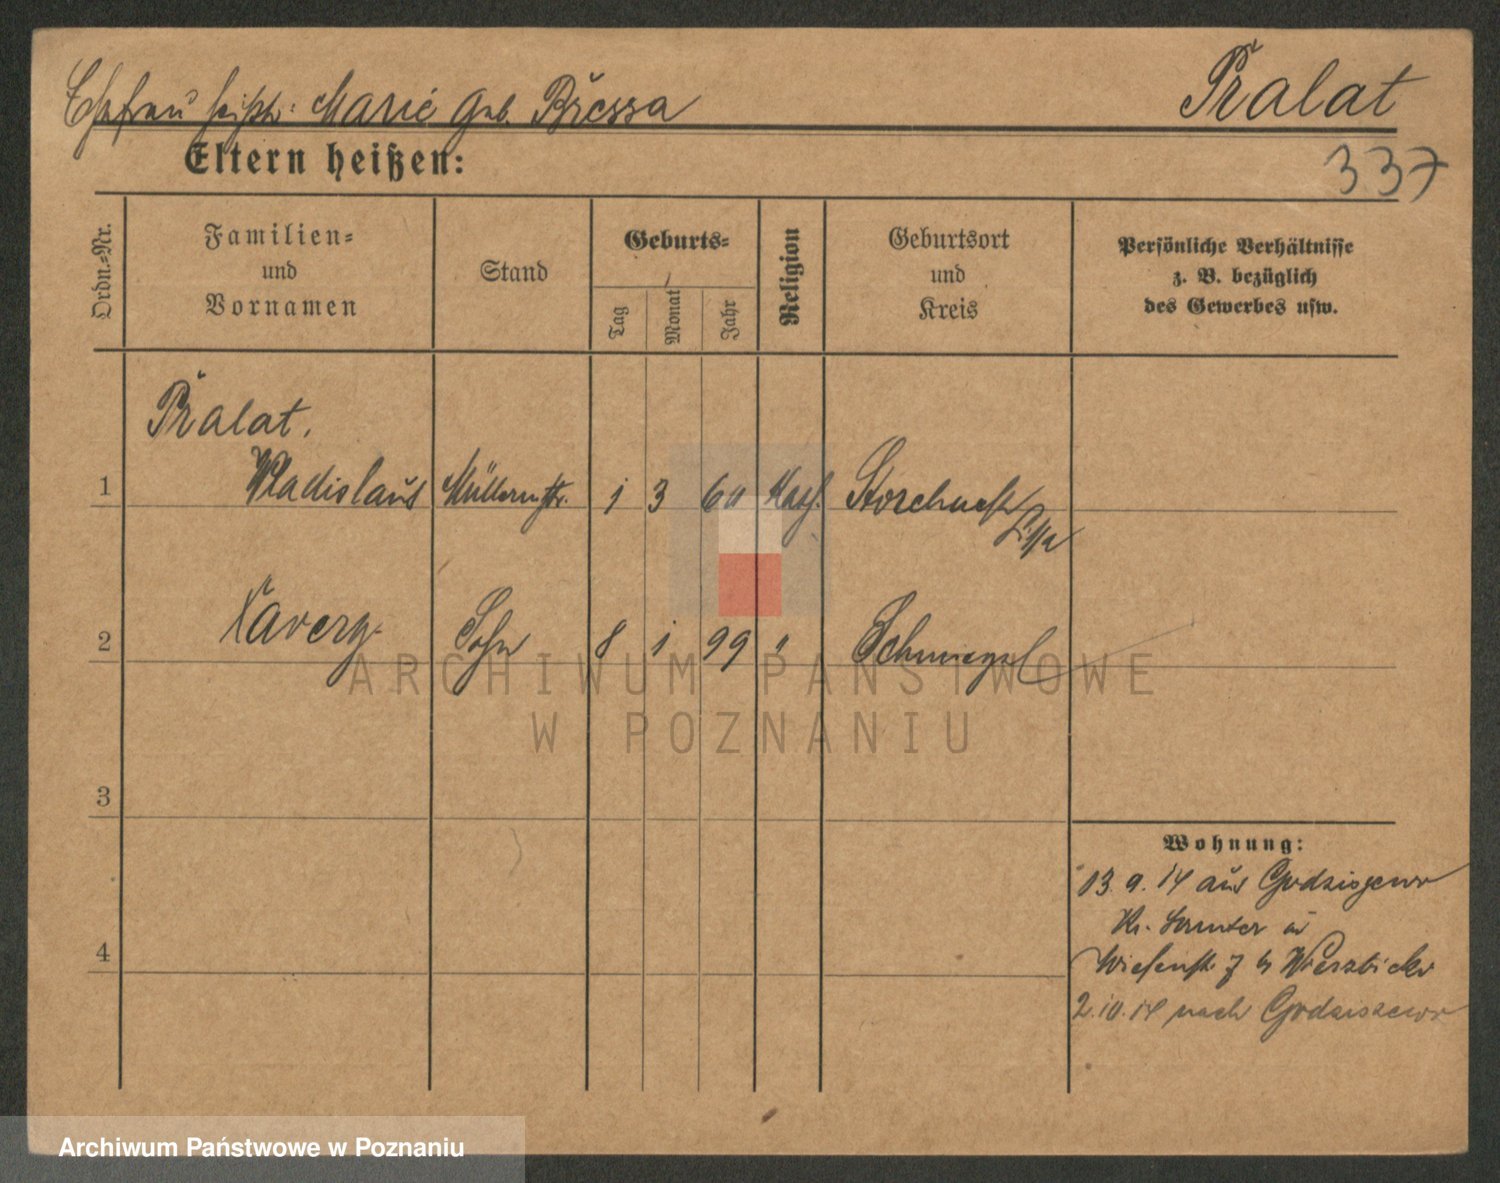 Ehefrau heißt: Marie geb. Bressa
Pralat
337
Eltern heißen:
Ordn.-Nr.
Familien-
und
Vornamen
Stand
Geburts-
Tag
Monat
Jahr
Religion
Geburtsort
und
Kreis
Persönliche Verhältnisse
z. B. bezüglich
des Gewerbes usw.
Pralat,
1 Wladislaus Müllermstr. 1 3 60 Kath. Storchnest
Lissa
2 Xavery Sohn 8 1 99 " Schmiegel
3
4
Wohnung:
13. 9. 14 aus Godzisgewo
Kr. Samter in
Wiesenstr. 7 b Wierzbicki
2. 10. 14 nach Godziszewo
ARCHIWUM PAŃSTWOWE
W POZNANIU
Archiwum Państwowe w Poznaniu